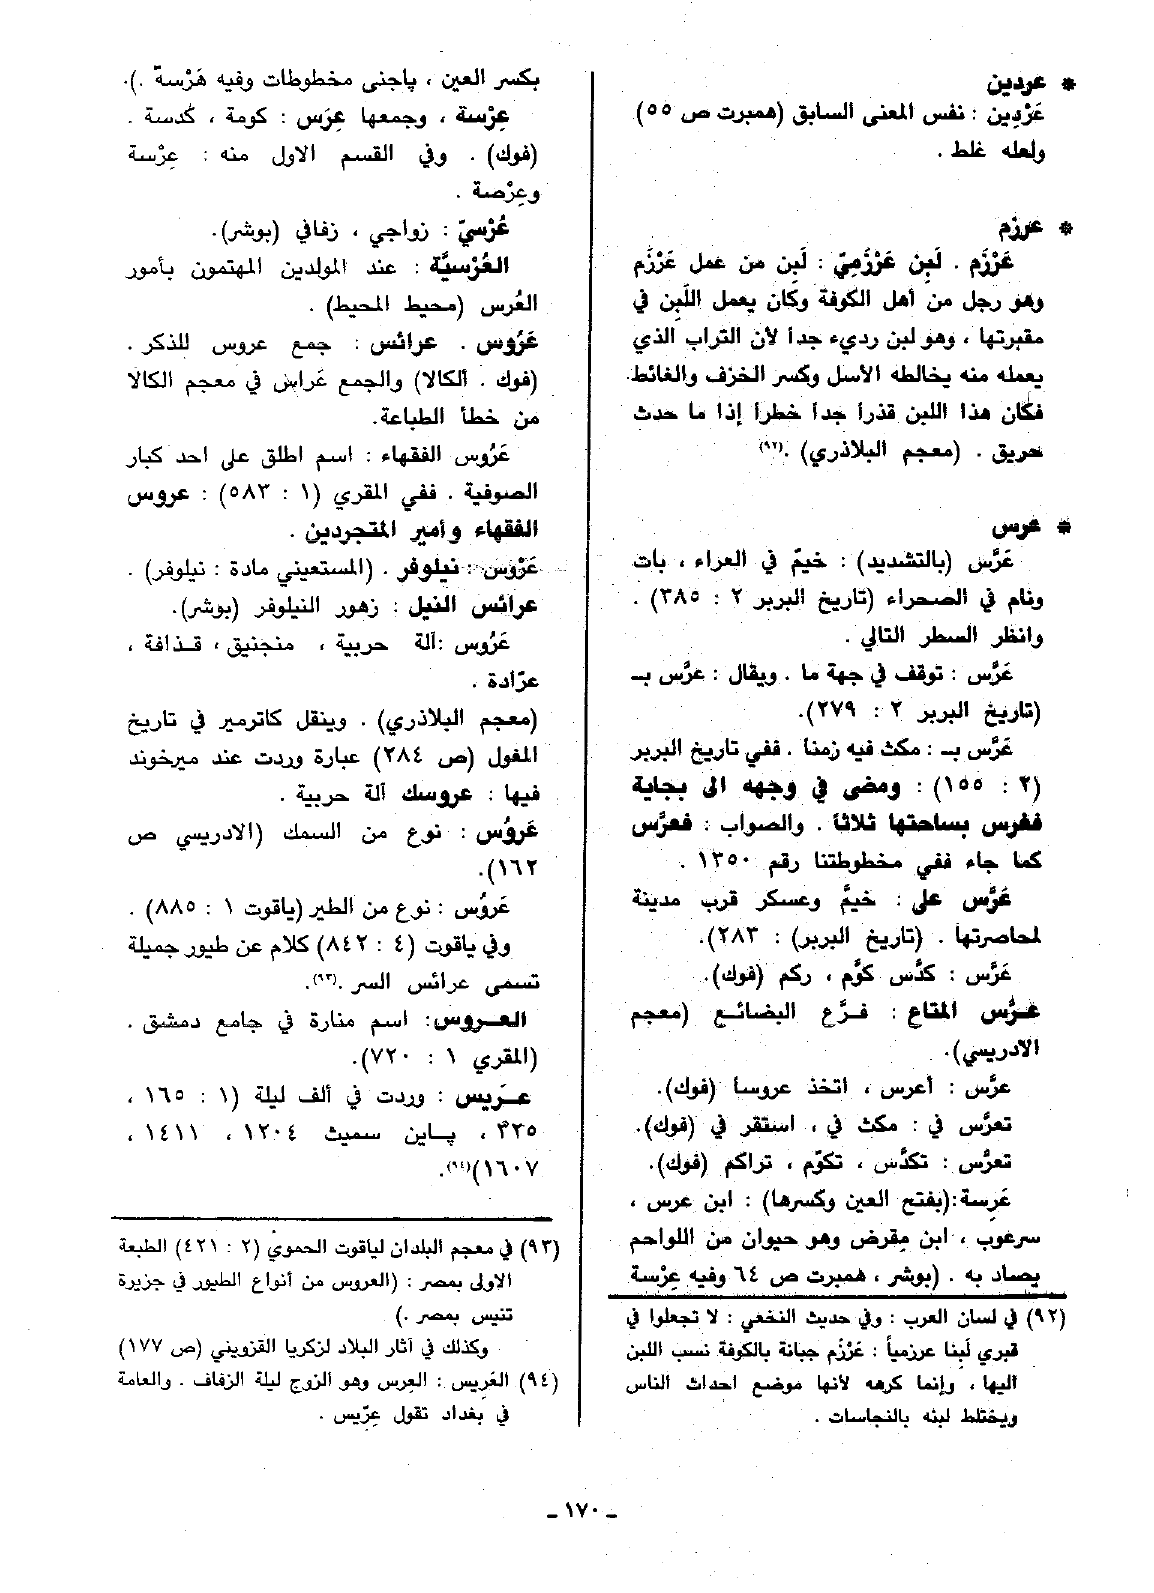 * عردين
عَرْدِين : نفس المعنى السابق (همبرت ص ٥٥)
ولعله غلط .
* عرزم
عَرْزَم . لَبِن عَرْزَمِيّ : لَبِن من عمل عَرْزَم
وهو رجل من أهل الكوفة وكان يعمل اللَبِن في
مقبرتها ، وهو لبن رديء جداً لأن التراب الذي
يعمله منه يخالطه الأسل وكسر الخزف والغائط
فكان هذا اللبن قذراً جداً خطراً إذا ما حدث
حريق . (معجم البلاذري) .(٩٢)
* عرس
عَرَّس (بالتشديد) : خيمّ في العراء ، بات
ونام في الصحراء (تاريخ البربر ٢ : ٣٨٥) .
وانظر السطر التالي .
عَرَّس : توقف في جهة ما . ويقال : عرَّس بـ
(تاريخ البربر ٢ : ٢٧٩).
عَرَّس بـ : مكث فيه زمناً . ففي تاريخ البربر
(٢ : ١٥٥) : ومضى في وجهه الى بجاية
ففرس بساحتها ثلاثاً . والصواب : فعرَّس
كما جاء ففي مخطوطتنا رقم ١٣٥٠ .
عَرَّس على : خيمَّ وعسكر قرب مدينة
لمحاصرتها . (تاريخ البربر) : ٢٨٣).
عَرَّس : كدَّس كوَّم ، ركم (فوك).
عـرَّس المتاع : فـرَّغ البضائـع (معجم
الادريسي).
عرَّس : أعرس ، اتخذ عروساً (فوك).
تعرَّس في : مكث في ، استقر في (فوك).
تعرَّس : تكدَّس ، تكوّم ، تراكم (فوك).
عَرِسة:(بفتح العين وكسرها) : ابن عرس ،
سرعوب ، ابن مِقرض وهو حيوان من اللواحم
يصاد به . (بوشر ، همبرت ص ٦٤ وفيه عِرْسة
(٩٢) في لسان العرب : وفي حديث النخعي : لا تجعلوا في
قبري لَبِنا عرزمياً : عَرْزَم جبانة بالكوفة نسب اللبن
اليها ، وإنما كرهه لأنها موضع احداث الناس
ويختلط لبنه بالنجاسات .
بكسر العين ، ياجنى مخطوطات وفيه هَرْسة .).
عِرْسة ، وجمعها عِرَس : كومة ، كُدسة .
(فوك) . وفي القسم الاول منه : عِرْسة
وعِرْصة .
عُرْسيّ : زواجي ، زفافي (بوشر).
العُرْسيَّة : عند المولدين المهتمون بأمور
العُرس (محيط المحيط) .
عَرُوس . عرائس : جمع عروس للذكر .
(فوك . ألكالا) والجمع عَراس في معجم الكالا
من خطأ الطباعة.
عَرُوس الفقهاء : اسم اطلق على احد كبار
الصوفية . ففي المقري (١ : ٥٨٣) : عروس
الفقهاء وأمير المتجردين .
عَرُوس : نيلوفر . (المستعيني مادة : نيلوفر) .
عرائس النيل : زهور النيلوفر (بوشر).
عَرُوس :آلة حربية ، منجنيق ، قـذافة ،
عرّادة .
(معجم البلاذري) . وينقل كاترمير في تاريخ
المغول (ص ٢٨٤) عبارة وردت عند ميرخوند
فيها : عروسك آلة حربية .
عَرُوس : نوع من السمك (الادريسي ص
١٦٢).
عَرُوس : نوع من الطير (ياقوت ١ : ٨٨٥) .
وفي ياقوت (٤ : ٨٤٢) كلام عن طيور جميلة
تسمى عرائس السر .(٩٣).
العـروس: اسم منارة في جامع دمشق .
(المقري ١ : ٧٢٠).
عـرَيس : وردت في ألف ليلة (١ : ١٦٥ ،
٣٢٥ ، يـاين سميث ١٢٠٤ ، ١٤١١ ،
١٦٠٧)(٩٤).
(٩٣) في معجم البلدان لياقوت الحموي (٢ : ٤٢١) الطبعة
الاولى بمصر : (العروس من أنواع الطيور في جزيرة
تنيس بمصر .)
وكذلك في آثار البلاد لزكريا القزويني (ص ١٧٧)
(٩٤) العَريس : العِرس وهو الزوج ليلة الزفاف . والعامة
في بغداد تقول عِرّيس .
ـ ١٧٠ ـ